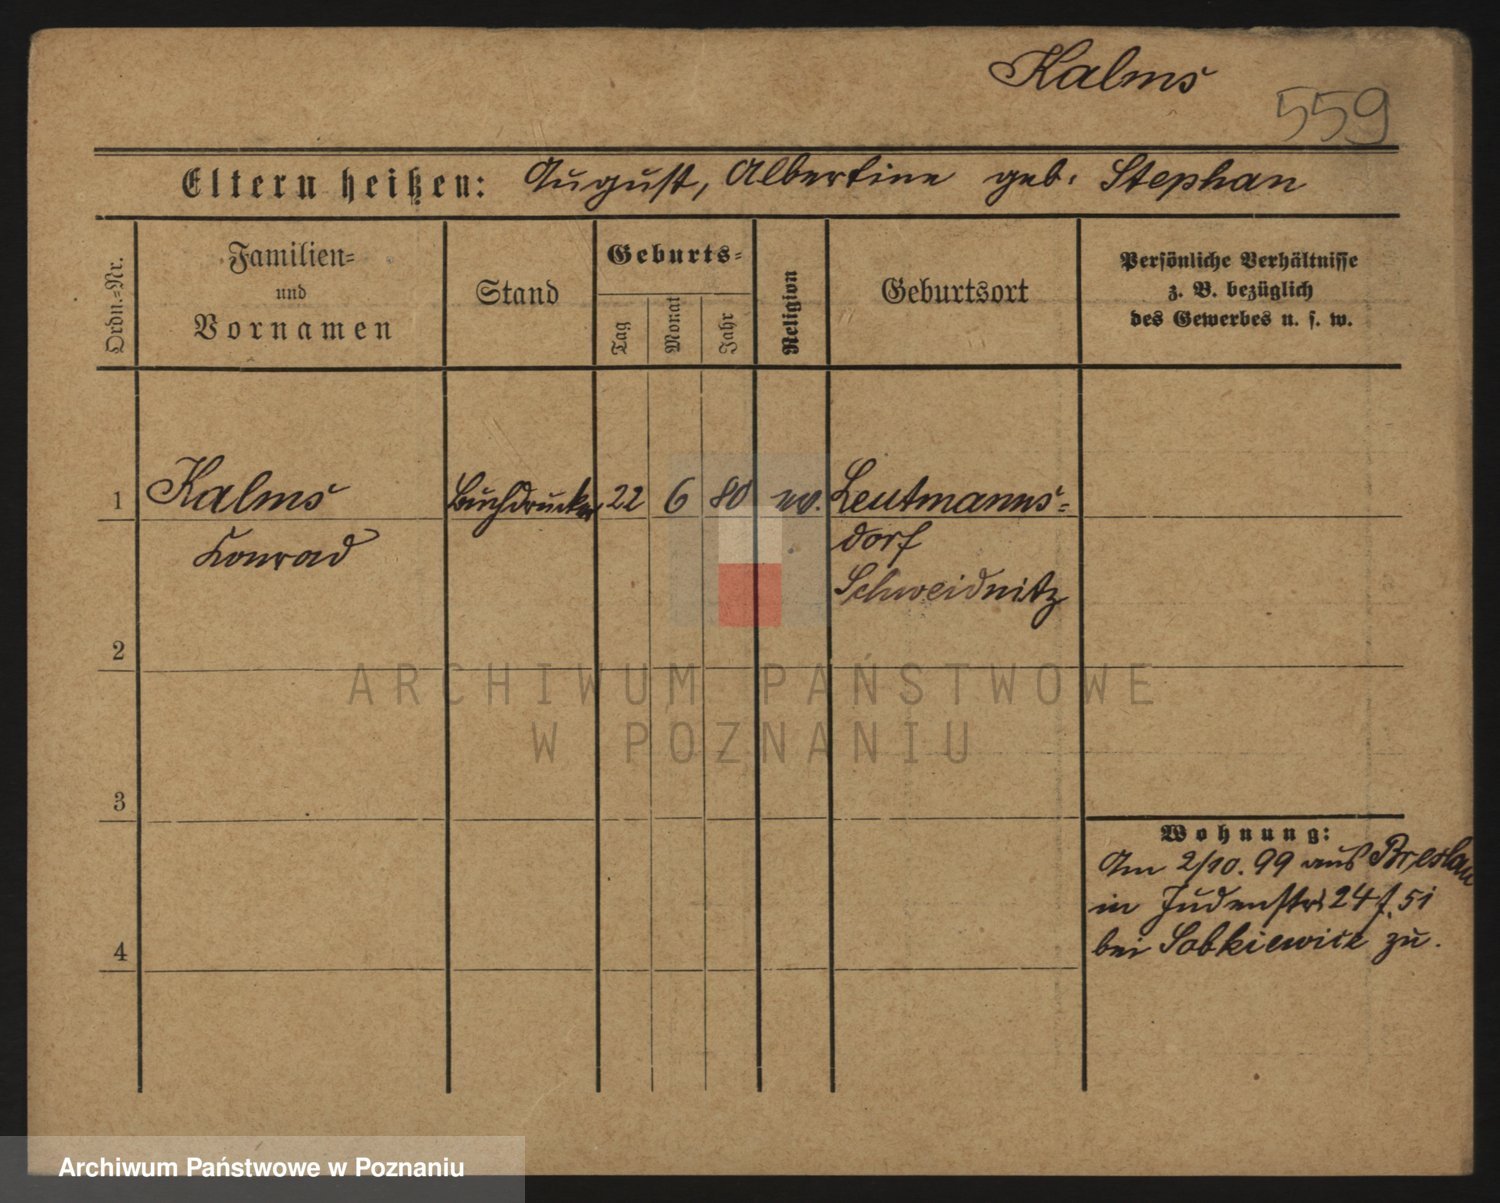 Kalms
559
Eltern heißen: August, Albertine geb. Stephan
Ordn.=Nr.
Familien=
und
Vornamen
Stand
Geburts=
Tag
Monat
Jahr
Religion
Geburtsort
Persönliche Verhältnisse
z. B. bezüglich
des Gewerbes u. s. w.
1 Kalms Buchdrucker 22 6 80 ev. Leutmanns=
Konrad dorf
Schweidnitz
2
ARCHIWUM PAŃSTWOWE
W POZNANIU
3
Wohnung:
Am 2/10. 99 aus Breslau
in Judenstr. 24 51
bei Sobkiewicz zu.
4
Archiwum Państwowe w Poznaniu